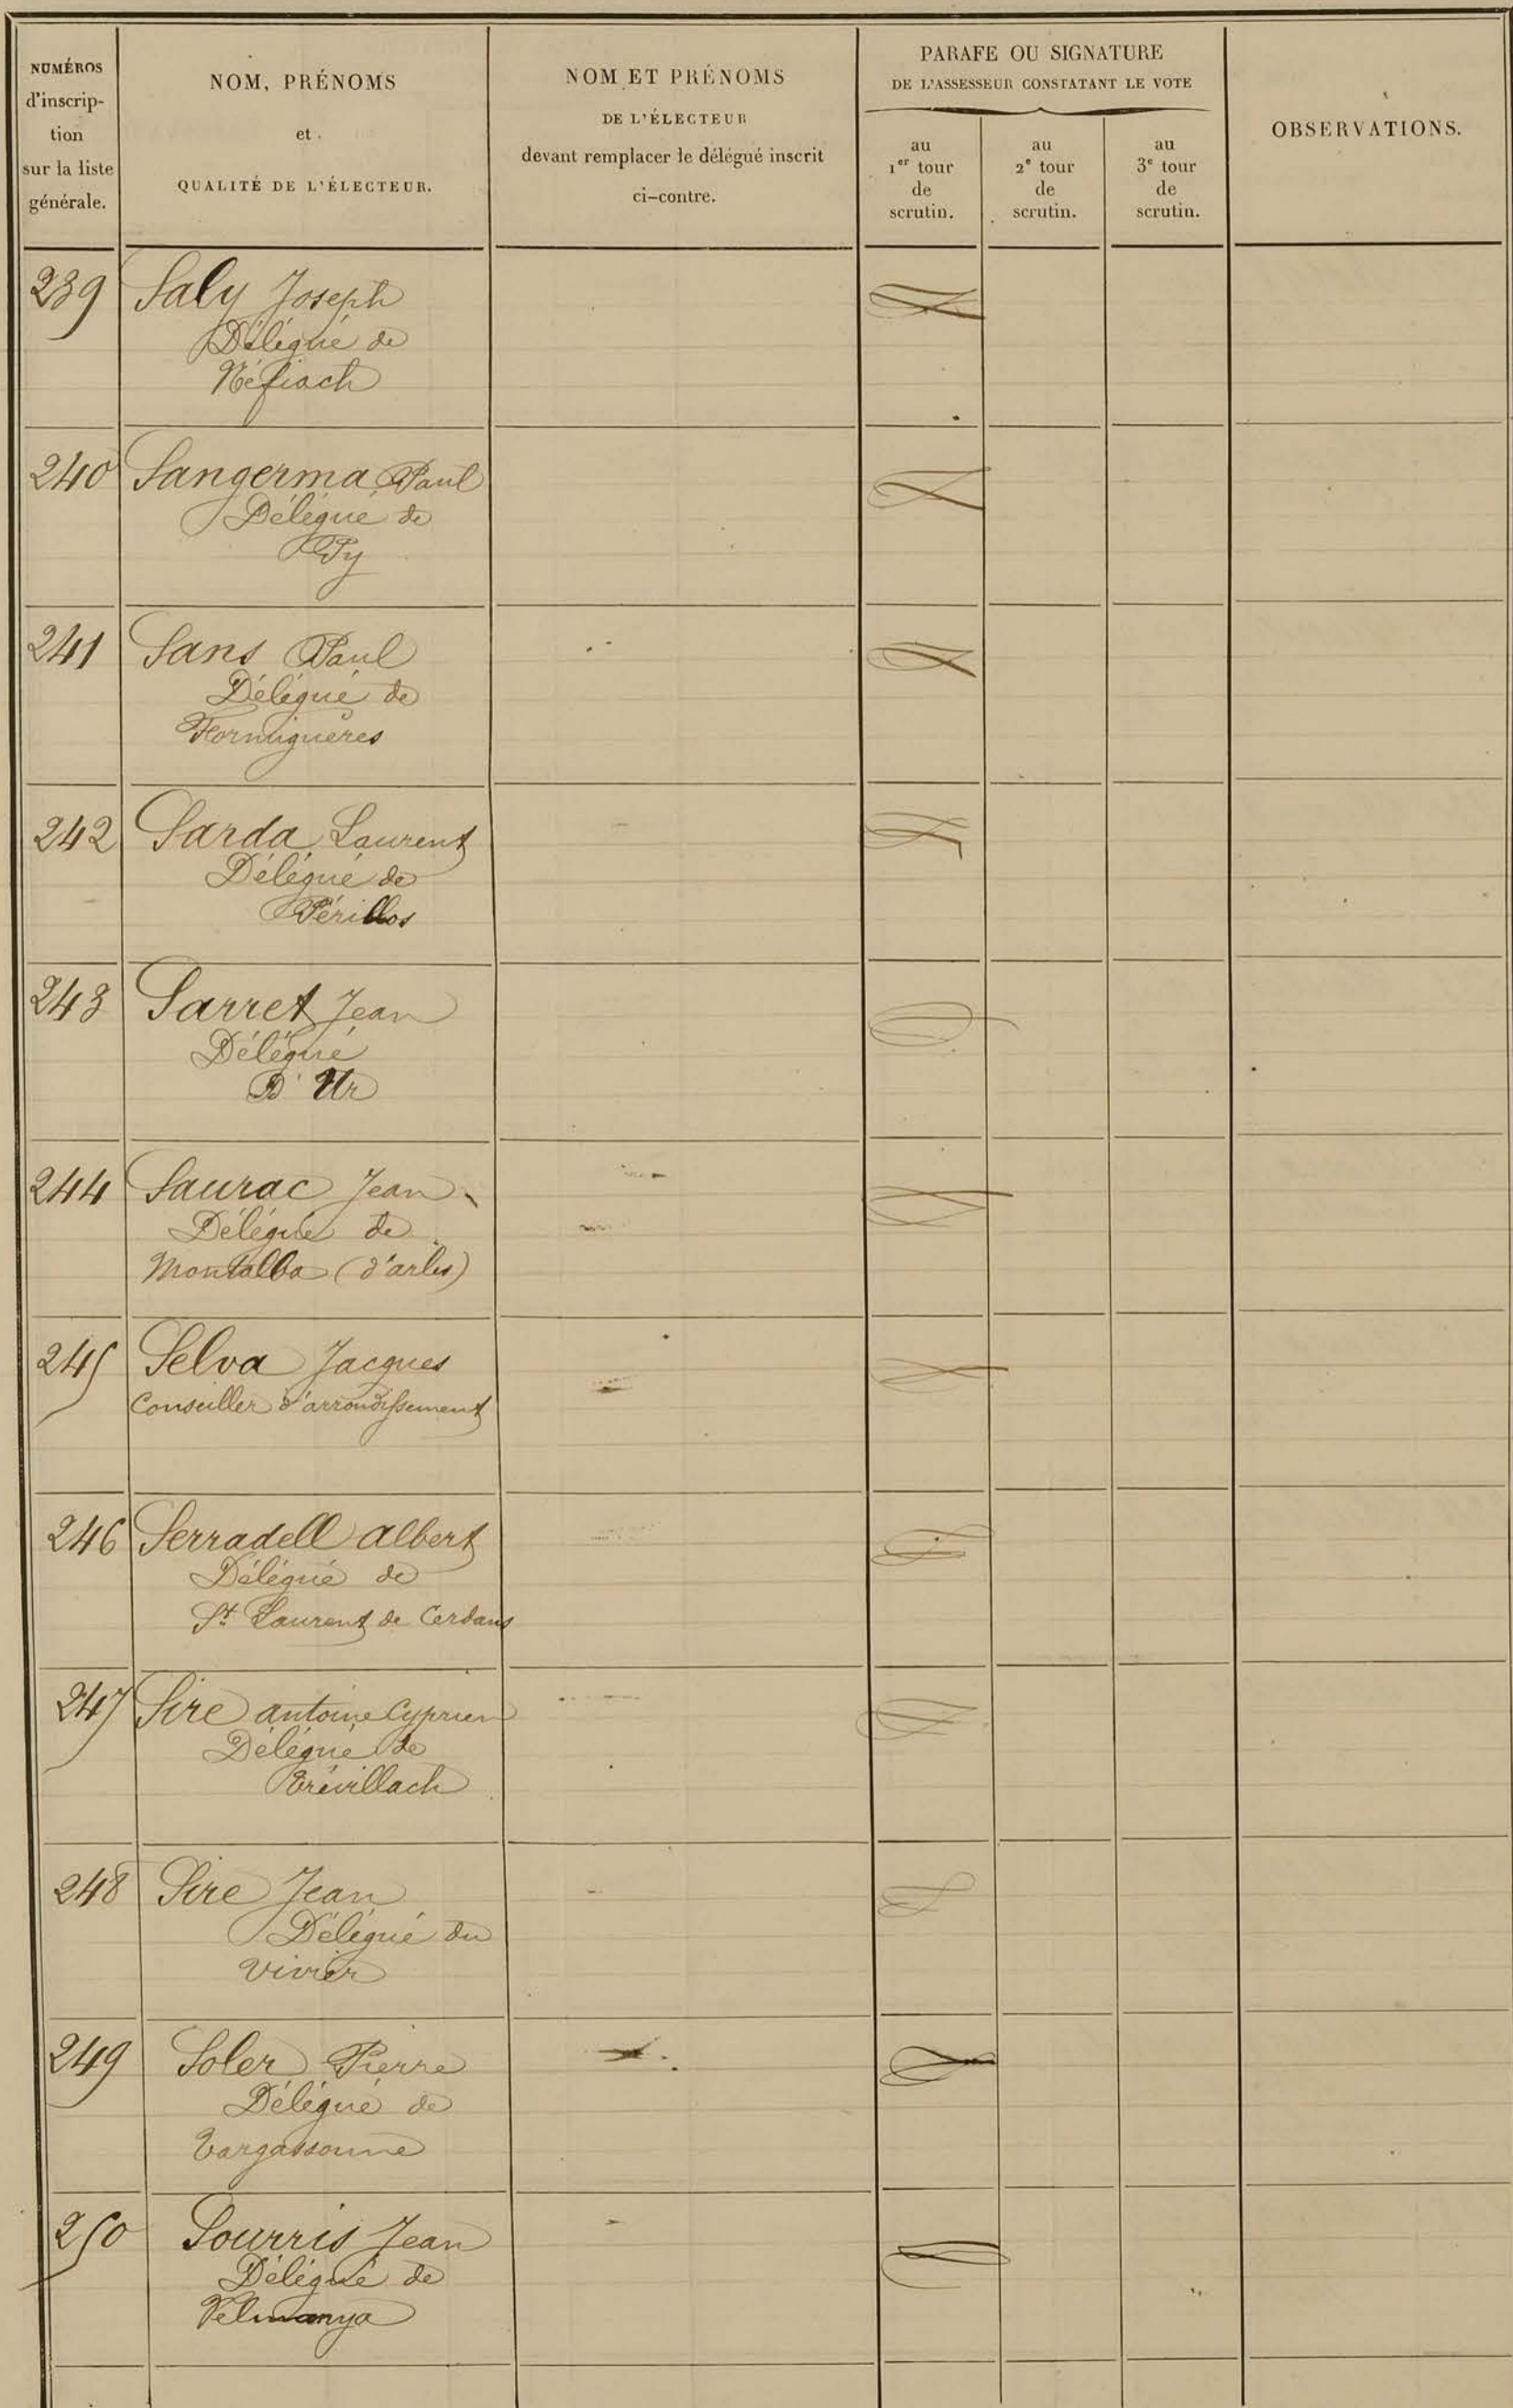 NUMÉROS
d'inscrip-
tion
sur la liste
générale.
NOM, PRÉNOMS
et
QUALITÉ DE L'ÉLECTEUR.
NOM ET PRÉNOMS
DE L'ÉLECTEUR
devant remplacer le délégué inscrit
ci-contre.
PARAFE OU SIGNATURE
DE L'ASSESSEUR CONSTATANT LE VOTE
au
1er tour
de
scrutin.
au
2e tour
de
scrutin.
au
3e tour
de
scrutin.
OBSERVATIONS.
239 Saly Joseph
Délégué de
Néfiach
240 Sangerma Paul
Délégué de
Py
241 Sans Paul
Délégué de
Formiguères
242 Sarda Laurent
Délégué de
Périllos
243 Sarret Jean
Délégué
D'Ur
244 Saurac Jean
Délégué de
Montalba (d'arles)
245 Selva Jacques
Conseiller d'arrondissement
246 Serradell albert
Délégué de
St Laurent de Cerdans
247 Sire antoine Cyprien
Délégué de
Trévillach
248 Sire Jean
Délégué du
Vivier
249 Soler Pierre
Délégué de
Targassonne
250 Sourris Jean
Délégué de
Velmanya